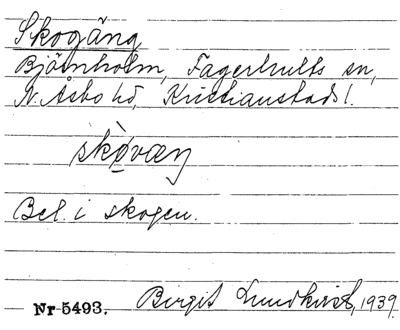 Skogäng
Björnholm, Fagerhults sn,
N. Åsbo hd, Kristianstads l.
skǿvæŋ
Bel. i skogen.
Nr 5493. Birgit Lundkvist, 1939.